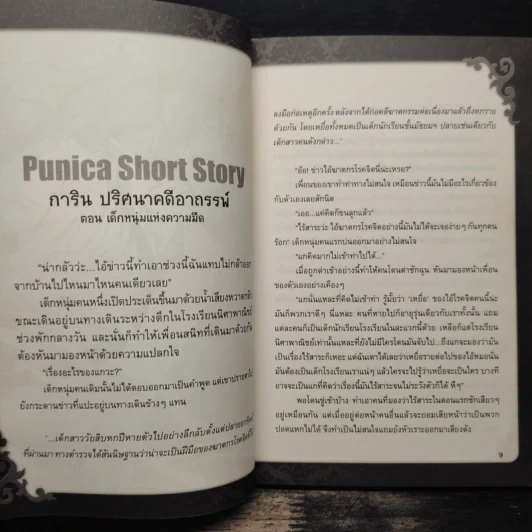 Punica Short Story
การิน ปริศนาคดีอาถรรพ์
ตอน เด็กหนุ่มแห่งความมืด
"น่ากลัวว่ะ...ไอ้ข่าวนี้ทำเอาช่วงนี้ฉันแทบไม่กล้าออก
จากบ้านไปไหนมาไหนคนเดียวเลย"
เด็กหนุ่มคนหนึ่งเปิดประเด็นขึ้นมาด้วยน้ำเสียงหวาด
ขณะเดินอยู่บนทางเดินระหว่างตึกในโรงเรียนนิศาพาณิชย์
ช่วงพักกลางวัน และนั่นก็ทำให้เพื่อนสนิทที่เดินมาด้วยกัน
ต้องหันมามองหน้าด้วยความแปลกใจ
"เรื่องอะไรของแกวะ?"
เด็กหนุ่มคนเดิมไม่ได้ตอบออกมาเป็นคำพูด แต่เขา
ยังกระดานข่าวที่แปะอยู่บนทางเดินข้างๆ แทน
'...เด็กสาววัยสิบหกปีหายตัวไปอย่างลึกลับตั้งแต่ปลายอาทิตย์
ที่ผ่านมา ทางตำรวจได้สันนิษฐานว่าน่าจะเป็นฝีมือของฆาตกรโรคจิตที่
ลงมือก่อเหตุอีกครั้ง หลังจากได้ก่อคดีฆาตกรรมต่อเนื่องมาแล้วถึงหกราย
ด้วยกัน โดยเหยื่อทั้งหมดเป็นเด็กนักเรียนชั้นมัธยมฯ ปลายเช่นเดียวกับ
เด็กสาวคนดังกล่าว...'
"อ๋อ! ข่าวไอ้ฆาตกรโรคจิตนี่น่ะเหรอ?"
เพื่อนของเขาทำท่าทางไม่สนใจ เหมือนข่าวนี้มันไม่มีอะไรเกี่ยวข้อง
กับตัวเองเลยสักนิด
"เออ...แค่คิดก็ขนลุกแล้ว"
"ไร้สาระว่ะ ไอ้ฆาตกรโรคจิตอย่างนี้มันไม่ได้เจอง่ายๆ กันทุกคน
ร้อก" เด็กหนุ่มคนแรกบ่นออกมาอย่างไม่สนใจ
"แกคิดมากไปเข้าท่าไปได้..."
เมื่อถูกด่าเข้าอย่างนี้ทำให้คนโดนด่าชักฉุน หันมามองหน้าเพื่อน
ของตัวเองอย่างเคืองๆ
"แกนั่นแหละที่คิดไม่เข้าท่า รู้มั้ยว่า 'เหยื่อ' ของไอ้โรคจิตคนนี้น่ะ
มันก็พวกเราดีๆ นี่แหละ คนที่หายไปก็อายุรุ่นเดียวกับเราทั้งนั้น แถม
แต่ละคนก็เป็นเด็กนักเรียนโรงเรียนในละแวกนี้ด้วย เหลือก็แต่โรงเรียน
นิศาพาณิชย์เท่านั้นแหละที่ยังไม่มีใครโดนมันจับไป...ถึงแกจะมองว่ามัน
เป็นเรื่องไร้สาระก็เหอะ แต่ฉันเดาได้เลยว่าเหยื่อรายต่อไปของไอ้หมอนั่น
มันต้องเป็นเด็กโรงเรียนเราแน่ๆ แล้วใครจะไปรู้ว่าเหยื่อจะเป็นใคร บางที
อาจจะเป็นแกที่คิดว่าเรื่องนี้มันไร้สาระจนไม่ระวังตัวก็ได้ หึๆ"
พอโดนขู่เข้าบ้าง ทำเอาคนที่มองว่าไร้สาระในตอนแรกชักเสียวๆ
อยู่เหมือนกัน แต่เมื่ออยู่ต่อหน้าคนอื่นแล้วจะยอมเสียหน้าว่าเป็นพวก
ปอดแหกไม่ได้ จึงทำเป็นไม่สนใจแถมยังหัวเราะออกมาเสียงดัง
9